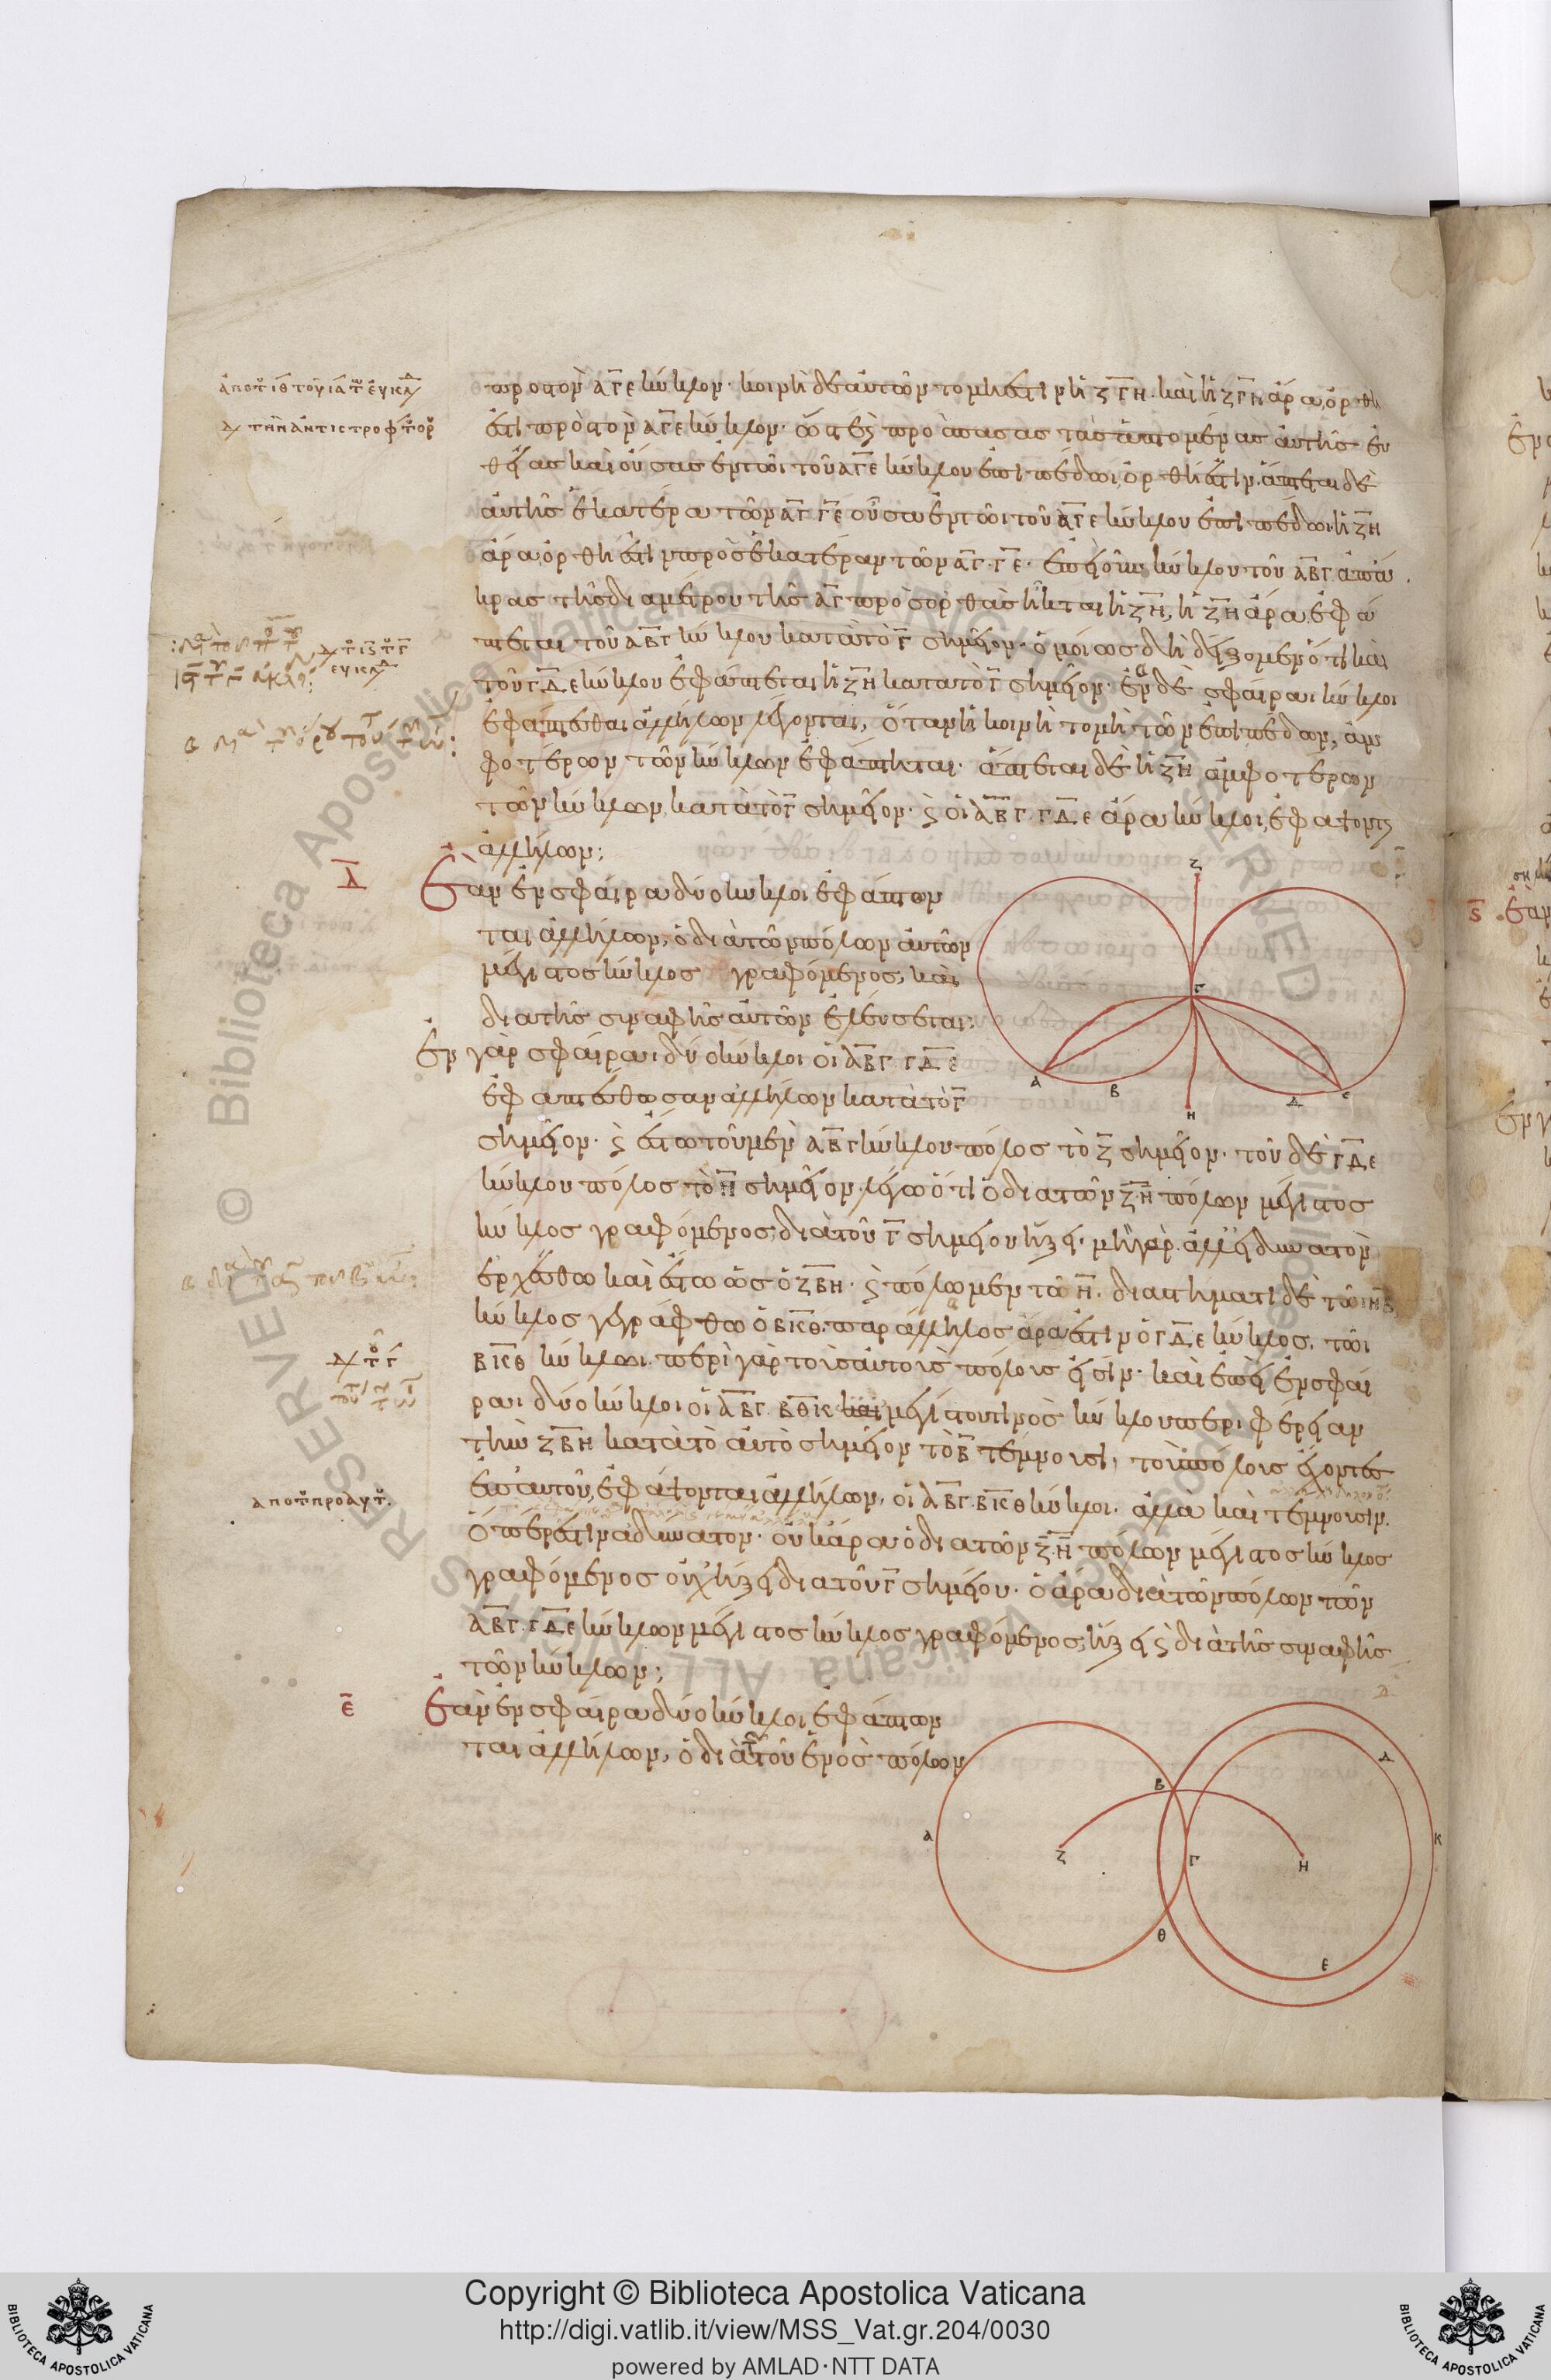 πρὸς τὸν ΑΓΕ κύκλον· κοινὴ δὲ αὐτῶν τομή ἐστιν ἡ ΖΓΗ· καὶ ἡ ΖΓΗ ἄρα ὀρθή
ἐστι πρὸς τὸν ΑΓΕ κύκλον· ὥστε καὶ πρὸς ἁπάσας τὰς ἁπτομένας αὐτῆς εὐ
θείας καὶ οὔσας ἐν τῶι τοῦ ΑΓΕ κύκλου ἐπιπέδωι, ὀρθή ἐστιν· ἅπτεται δὲ
αὐτῆς ἑκατέρα τῶν ΑΓ ΓΕ οὖσα ἐν τῶι τοῦ ΑΓΕ κύκλου ἐπιπέδωι· ἡ ΖΗ
ἄρα ὀρθή ἐστι πρὸς ἑκατέραν τῶν ΑΓ· ΓΕ· ἐπεὶ οὖν κύκλου τοῦ ΑΒΓ ἀπ' ἄ
κρας τῆς διαμέτρου τῆς ΑΓ πρὸς ὀρθὰς ἦκται ἡ ΖΗ, ἡ ΖΗ ἄρα ἐφά
πτεται τοῦ ΑΒΓ κύκλου κατὰ τὸ Γ σημεῖον· ὁμοίως δὴ δείξομεν ὅτι καὶ
τοῦ ΓΔΕ κύκλου ἐφάπτεται ἡ ΖΗ κατὰ τὸ Γ σημεῖον· ἐν δὲ σφαίραι κύκλοι
ἐφάπτεσθαι ἀλλήλων λέγονται, ὅταν ἡ κοινὴ τομὴ τῶν ἐπιπέδων, ἀμ
φοτέρων τῶν κύκλων ἐφάπτηται· ἅπτεται δὲ ἡ ΖΗ ἀμφοτέρων
τῶν κύκλων κατὰ τὸ Γ σημεῖον· καὶ οἱ ΑΒΓ ΓΔΕ ἄρα κύκλοι, ἐφάψονται
ἀλλήλων:
Δ Ἐὰν ἐν σφαίρα δύο κύκλοι ἐφάπτων
ται ἀλλήλων, ὁ διὰ τῶν πόλων αὐτῶν
μέγιστος κύκλος γραφόμενος, καὶ
διὰ τῆς συναφῆς αὐτῶν ἐλεύσεται:
Ἐν γὰρ σφαίραι δύο κύκλοι οἱ ΑΒΓ ΓΔΕ
ἐφαπτέσθωσαν ἀλλήλων κατὰ τὸ Γ
σημεῖον· καὶ ἔστω τοῦ μὲν ΑΒΓ κύκλου πόλος τὸ Ζ σημεῖον· τοῦ δὲ ΓΔΕ
κύκλου πόλος τὸ Η σημεῖον· λέγω ὅτι ὁ διὰ τῶν Ζ·Η πόλων μέγιστος
κύκλος γραφόμενος, διὰ τοῦ Γ σημείου ἥξει· μὴ γάρ· ἀλλ' εἰ δυνατὸν
ἐρχέσθω καὶ ἔστω ὡς ὁ ΖΒΗ· καὶ πόλω μὲν τῶ Η· διαστήματι δὲ τῶι ΗΒ
κύκλος γεγράφθω ὁ ΒΚΘ· παράλληλος ἄρα ἐστὶν ὁ ΓΔΕ κύκλος, τῶι
ΒΚΘ κύκλωι· περὶ γὰρ τοὺς αὐτοὺς πόλους εἰσίν· καὶ ἐπεὶ ἐν σφαί
ραι δύο κύκλοι οἱ ΑΒΓ· ΒΘΚ καὶ μεγίστου τινὸς κύκλου περιφέρειαν
τὴν ΖΒΗ κατὰ τὸ αὐτὸ σημεῖον τὸ Β τέμνουσι, τοὺς πόλους ἔχοντες
ἐπ' αὐτοῦ, ἐφάψονται ἀλλήλων, οἱ ΑΒΓ· ΒΚΘ κύκλοι· ἀλλὰ καὶ τέμνουσιν·
ὅπερ ἐστὶν ἀδύνατον· οὐκ ἄρα ὁ διὰ τῶν Ζ·Η πόλων μέγιστος κύκλος
γραφόμενος οὐχ ἥξει διὰ τοῦ Γ σημείου· ὁ ἄρα διὰ τῶν πόλων τῶν
ΑΒΓ· ΓΔΕ κύκλων μέγιστος κύκλος γραφόμενος, ἥξει καὶ διὰ τῆς συναφῆς
τῶν κύκλων:
Ε Ἐὰν ἐν σφαίρα δύο κύκλοι ἐφάπτων
ται ἀλλήλων, ὁ διὰ τοῦ ἑνὸς πόλων
Ζ
Γ
Α Β Η Δ Ε
Δ
Β
Α Ζ Γ Η Κ
Θ
Ε
© Biblioteca Apostolica Vaticana ALL RIGHTS RESERVED
Copyright © Biblioteca Apostolica Vaticana
http://digi.vatlib.it/view/MSS_Vat.gr.204/0030
powered by AMLAD·NTT DATA
BIBLIOTECA APOSTOLICA VATICANA
BIBLIOTECA APOSTOLICA VATICANA